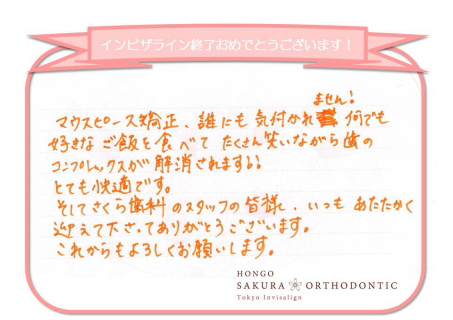 インビザライン終了おめでとうございます！
ません！
マウスピース矯正、誰にも気付かれ 何でも
好きなご飯を食べて たくさん笑いながら歯の
コンプレックスが解消されます!!
とても快適です。
そしてさくら歯科のスタッフの皆様、いつもあたたかく
迎えて下さってありがとうございます。
これからもよろしくお願いします。
HONGO
SAKURA ORTHODONTIC
Tokyo Invisalign